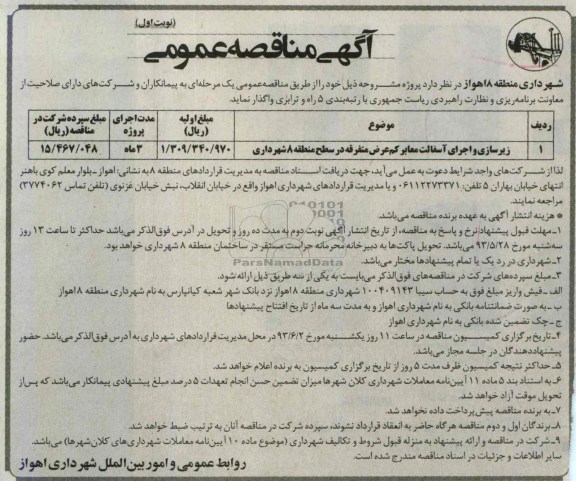 (نوبت اول)
آگهی مناقصه عمومی
شهرداری منطقه ۸ اهواز در نظر دارد پروژه مشروحه ذیل خود را از طریق مناقصه عمومی یک مرحله‌ای به پیمانکاران و شرکت‌های دارای صلاحیت از
معاونت برنامه‌ریزی و نظارت راهبردی ریاست جمهوری با رتبه‌بندی ۵ راه و ترابری واگذار نماید.
ردیف موضوع مبلغ اولیه (ریال) مدت اجرای پروژه مبلغ سپرده شرکت در مناقصه (ریال)
۱ زیرسازی و اجرای آسفالت معابر کم عرض متفرقه در سطح منطقه ۸ شهرداری ۱/۳۰۹/۳۴۰/۹۷۰ ۳ ماه ۱۵/۴۶۷/۰۴۸
لذا از شرکت‌های واجد شرایط دعوت به عمل می‌آید، جهت دریافت اسناد مناقصه به مدیریت قراردادهای منطقه ۸ به نشانی: اهواز ـ بلوار معلم کوی باهنر
انتهای خیابان بهاران ۵ تلفن: ۰۶۱۱۲۲۷۳۳۷۱ و یا مدیریت قراردادهای شهرداری اهواز واقع در خیابان انقلاب، نبش خیابان غزنوی (تلفن تماس ۳۷۷۴۰۶۲)
مراجعه نمایند.
* هزینه انتشار آگهی به عهده برنده مناقصه می‌باشد.
۱ـ مهلت قبول پیشنهاد نرخ و پاسخ به مناقصه، از تاریخ انتشار آگهی نوبت دوم به مدت ده روز و تحویل در آدرس فوق‌الذکر می‌باشد حداکثر تا ساعت ۱۳ روز
سه‌شنبه مورخ ۹۳/۵/۲۸ می‌باشد. تحویل پاکت‌ها به دبیرخانه محرمانه حراست مستقر در ساختمان منطقه ۸ شهرداری خواهد بود.
۲ـ شهرداری در رد یک یا تمام پیشنهادها مختار می‌باشد.
ParsNamadData
۳ـ مبلغ سپرده‌های شرکت در مناقصه‌های فوق‌الذکر می‌بایست به یکی از سه طریق ذیل ارائه شود.
الف ـ فیش واریز مبلغ فوق به حساب سیبا ۱۰۰۴۰۹۱۴۳ شهرداری منطقه ۸ اهواز نزد بانک شهر شعبه کیانپارس به نام شهرداری منطقه ۸ اهواز
ب ـ به صورت ضمانتنامه بانکی به نام شهرداری اهواز و به مدت سه ماه از تاریخ افتتاح پیشنهادها
ج ـ چک تضمین شده بانکی به نام شهرداری اهواز
۴ـ تاریخ برگزاری کمیسیون مناقصه در ساعت ۱۱ روز یکشنبه مورخ ۹۳/۶/۲ در محل مدیریت قراردادهای شهرداری به آدرس فوق‌الذکر می‌باشد. حضور
پیشنهاددهندگان در جلسه مجاز می‌باشد.
۵ـ حداکثر نتیجه کمیسیون ظرف مدت ۵ روز از تاریخ برگزاری کمیسیون به برنده اعلام خواهد شد.
۶ـ به استناد بند ۵ ماده ۱۱ آیین‌نامه معاملات شهرداری کلان شهرها میزان تضمین حسن انجام تعهدات ۵ درصد مبلغ پیشنهادی پیمانکار می‌باشد که پس از
تحویل موقت آزاد خواهد شد.
۷ـ به برنده مناقصه پیش‌پرداخت داده نخواهد شد.
۸ـ برندگان اول و دوم مناقصه هر گاه حاضر به انعقاد قرارداد نشوند، سپرده شرکت در مناقصه آنان به ترتیب ضبط خواهد شد.
۹ـ شرکت در مناقصه و ارائه پیشنهاد به منزله قبول شروط و تکالیف شهرداری (موضوع ماده ۱۰ آیین‌نامه معاملات شهرداری‌های کلان‌شهرها) می‌باشد.
سایر اطلاعات و جزئیات در اسناد مناقصه مندرج شده است.
روابط عمومی و امور بین الملل شهرداری اهواز